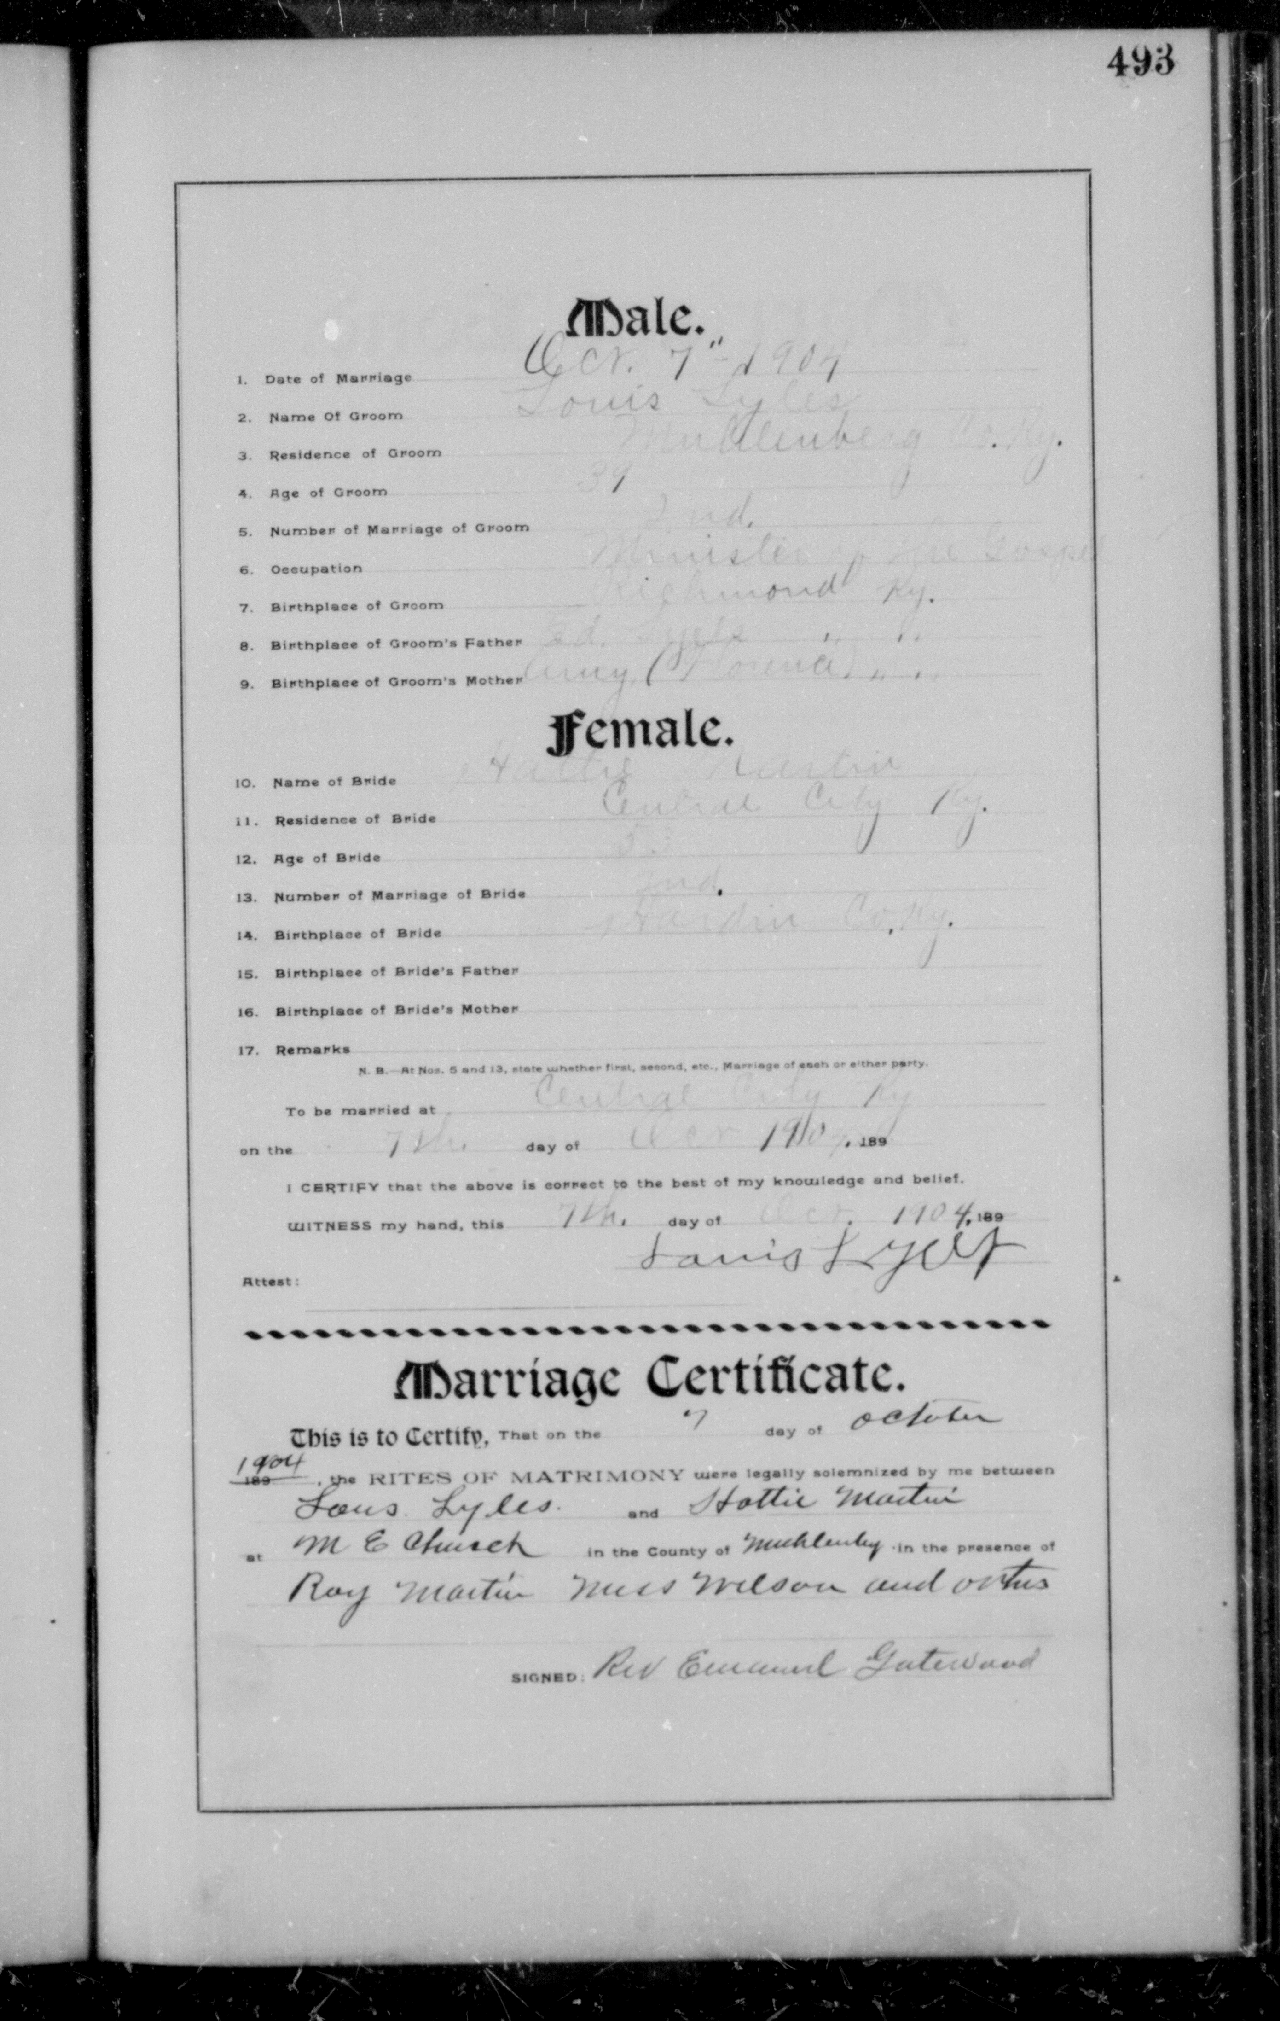 493
Male.
1. Date of Marriage Oct. 7" 1904
2. Name Of Groom Louis Lyles
3. Residence of Groom Muhlenberg Co. Ky.
4. Age of Groom 39
5. Number of Marriage of Groom 2nd.
6. Occupation Minister of the Gospel
7. Birthplace of Groom Richmond Ky.
8. Birthplace of Groom's Father Ed. Lyels " "
9. Birthplace of Groom's Mother Amy " "
Female.
10. Name of Bride Hattie Martin
11. Residence of Bride Central City Ky.
12. Age of Bride
13. Number of Marriage of Bride 2nd.
14. Birthplace of Bride Hardin Co. Ky.
15. Birthplace of Bride's Father
16. Birthplace of Bride's Mother
17. Remarks
N. B.—At Nos. 5 and 13, state whether first, second, etc., Marriage of each or either party.
To be married at Central City Ky
on the 7th. day of Oct 1904. 189
I CERTIFY that the above is correct to the best of my knowledge and belief.
WITNESS my hand, this 7th. day of Oct. 1904. 189
Louis Lyels
Attest:
Marriage Certificate.
This is to Certify, That on the 7 day of October
1904 189 , the RITES OF MATRIMONY were legally solemnized by me between
Lous Lyles. and Hattie Martin
at M E Church in the County of in the presence of
Roy Martin Miss Wilson and
SIGNED: Rev Emanuel Gatewood